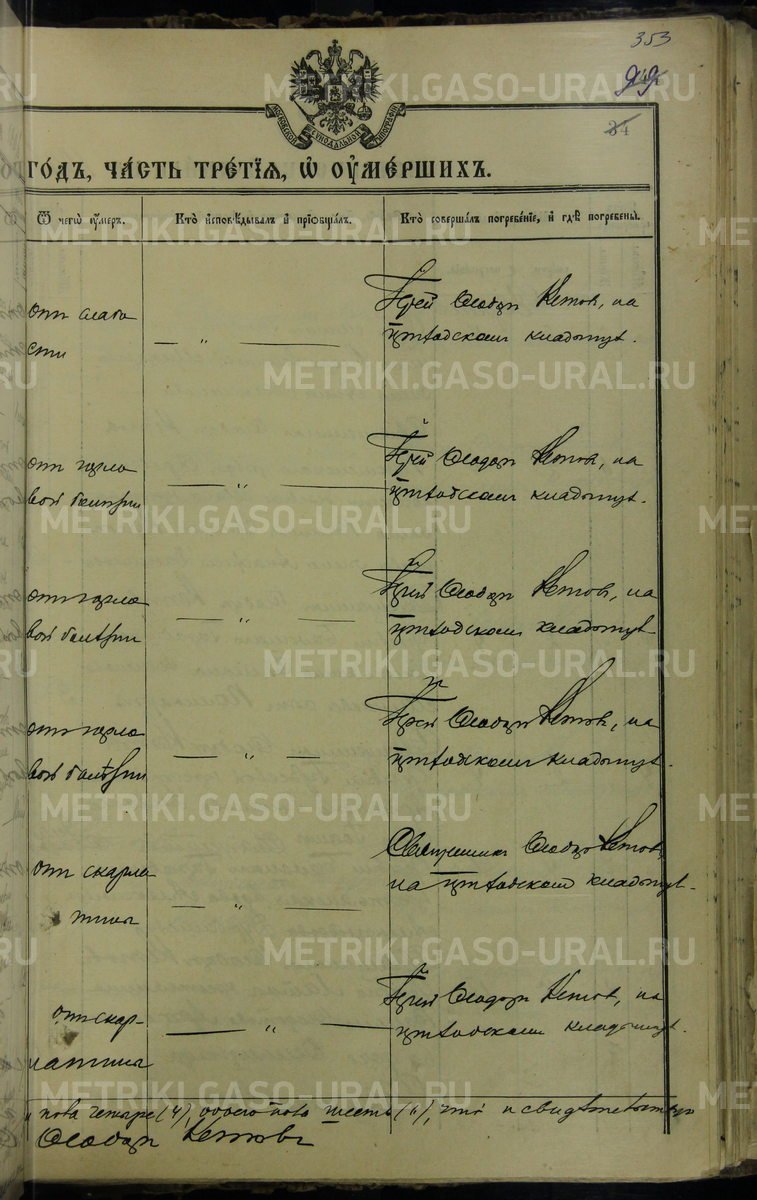 353
99
34
МОСКОВСКОЙ СѴНОДАЛЬНОЙ ТИПОГРАФІИ
го́дъ, ча́сть тре́тїѧ, ѡ҆ ᲂу҆ме́ршихъ.
Ѿ чегѡ̀ ᲂу҆́меръ.
Кто̀ и҆сповѣ́дывалъ и҆ прїѡбща́лъ.
Кто̀ соверша́лъ погребе́нїе, и҆ гдѣ̀ погребены̀.
отъ слабо
сти
— „ —
Іерей Ѳеодоръ Кетовъ, на
приходскомъ кладбищѣ.
отъ горло
вой болѣзни
— „ —
Іерей Ѳеодоръ Кетовъ, на
приходскомъ кладбищѣ.
отъ горло
вой болѣзни
— „ —
Іерей Ѳеодоръ Кетовъ, на
приходскомъ кладбищѣ
отъ горло
вой болѣзни
— „ —
Іерей Ѳеодоръ Кетовъ, на
приходскомъ кладбищѣ.
отъ скарла
тины
— „ —
Священникъ Ѳеодоръ Кетовъ,
на приходскомъ кладбищѣ.
отъ скар-
латины
— „ —
Іерей Ѳеодоръ Кетовъ, на
приходскомъ кладбищѣ.
пола четыре (4), обоего пола шесть (6), что и свидѣтельствую
Ѳеодоръ Кетовъ
METRIKI.GASO-URAL.RU